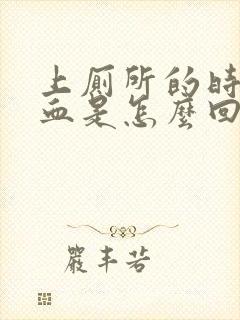 上厕所的时
血是怎麼回
嚴丰若